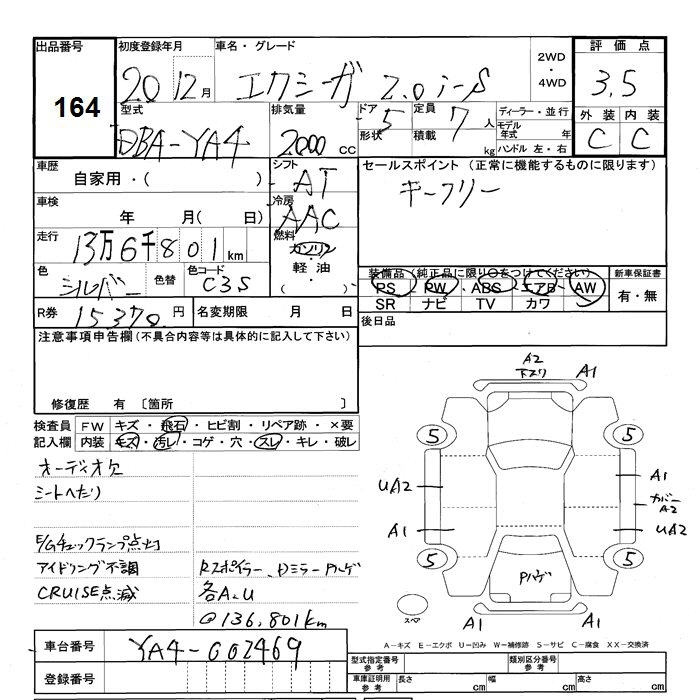 出品番号
164
初度登録年月
20 12月
車名・グレード
エクシーガ 2.0i-S
2WD
・
4WD
評価点
3.5
外装 内装
C C
型式
DBA-YA4
排気量
2000 cc
ドア 5
形状
定員 7 人
積載 kg
ディーラー・並行
モデル年式 年
ハンドル 左・右
車歴
自家用・( )
シフト
AT
セールスポイント (正常に機能するものに限ります)
キーフリー
車検
年 月( 日)
冷房
AAC
走行
13万6千801km
燃料
ガソリン
・
軽油
・
( )
色
シルバー
色替
色コード
C3S
装備品 (純正品に限り○をつけてください)
PS ・ PW ・ ABS ・ エアB ・ AW
SR ナビ TV カワ
新車保証書
有・無
R券 15370 円
名変期限 月 日
後日品
注意事項申告欄 (不具合内容等は具体的に記入して下さい)
修復歴 有 〔箇所 〕
検査員記入欄
FW キズ・飛石・ヒビ割・リペア跡・×要
内装 キズ・汚レ・コゲ・穴・スレ・キレ・破レ
オーディオ欠
シートへたり
E/Gチェックランプ点灯
アイドリング不調
CRUISE点滅
Rスポイラー、Dミラー Pハゲ
各A.U
@136,801km
A2
下スリ A1
5 5
UA2
A1
カバー
A2
A1
UA2
5 5
Pハゲ
スペア
A1 A1
A－キズ E－エクボ U－凹み W－補修跡 S－サビ C－腐食 XX－交換済
車台番号
YA4-002469
登録番号
型式指定番号
参考
類別区分番号
参考
車庫証明用
参考
長さ cm
幅 cm
高さ cm